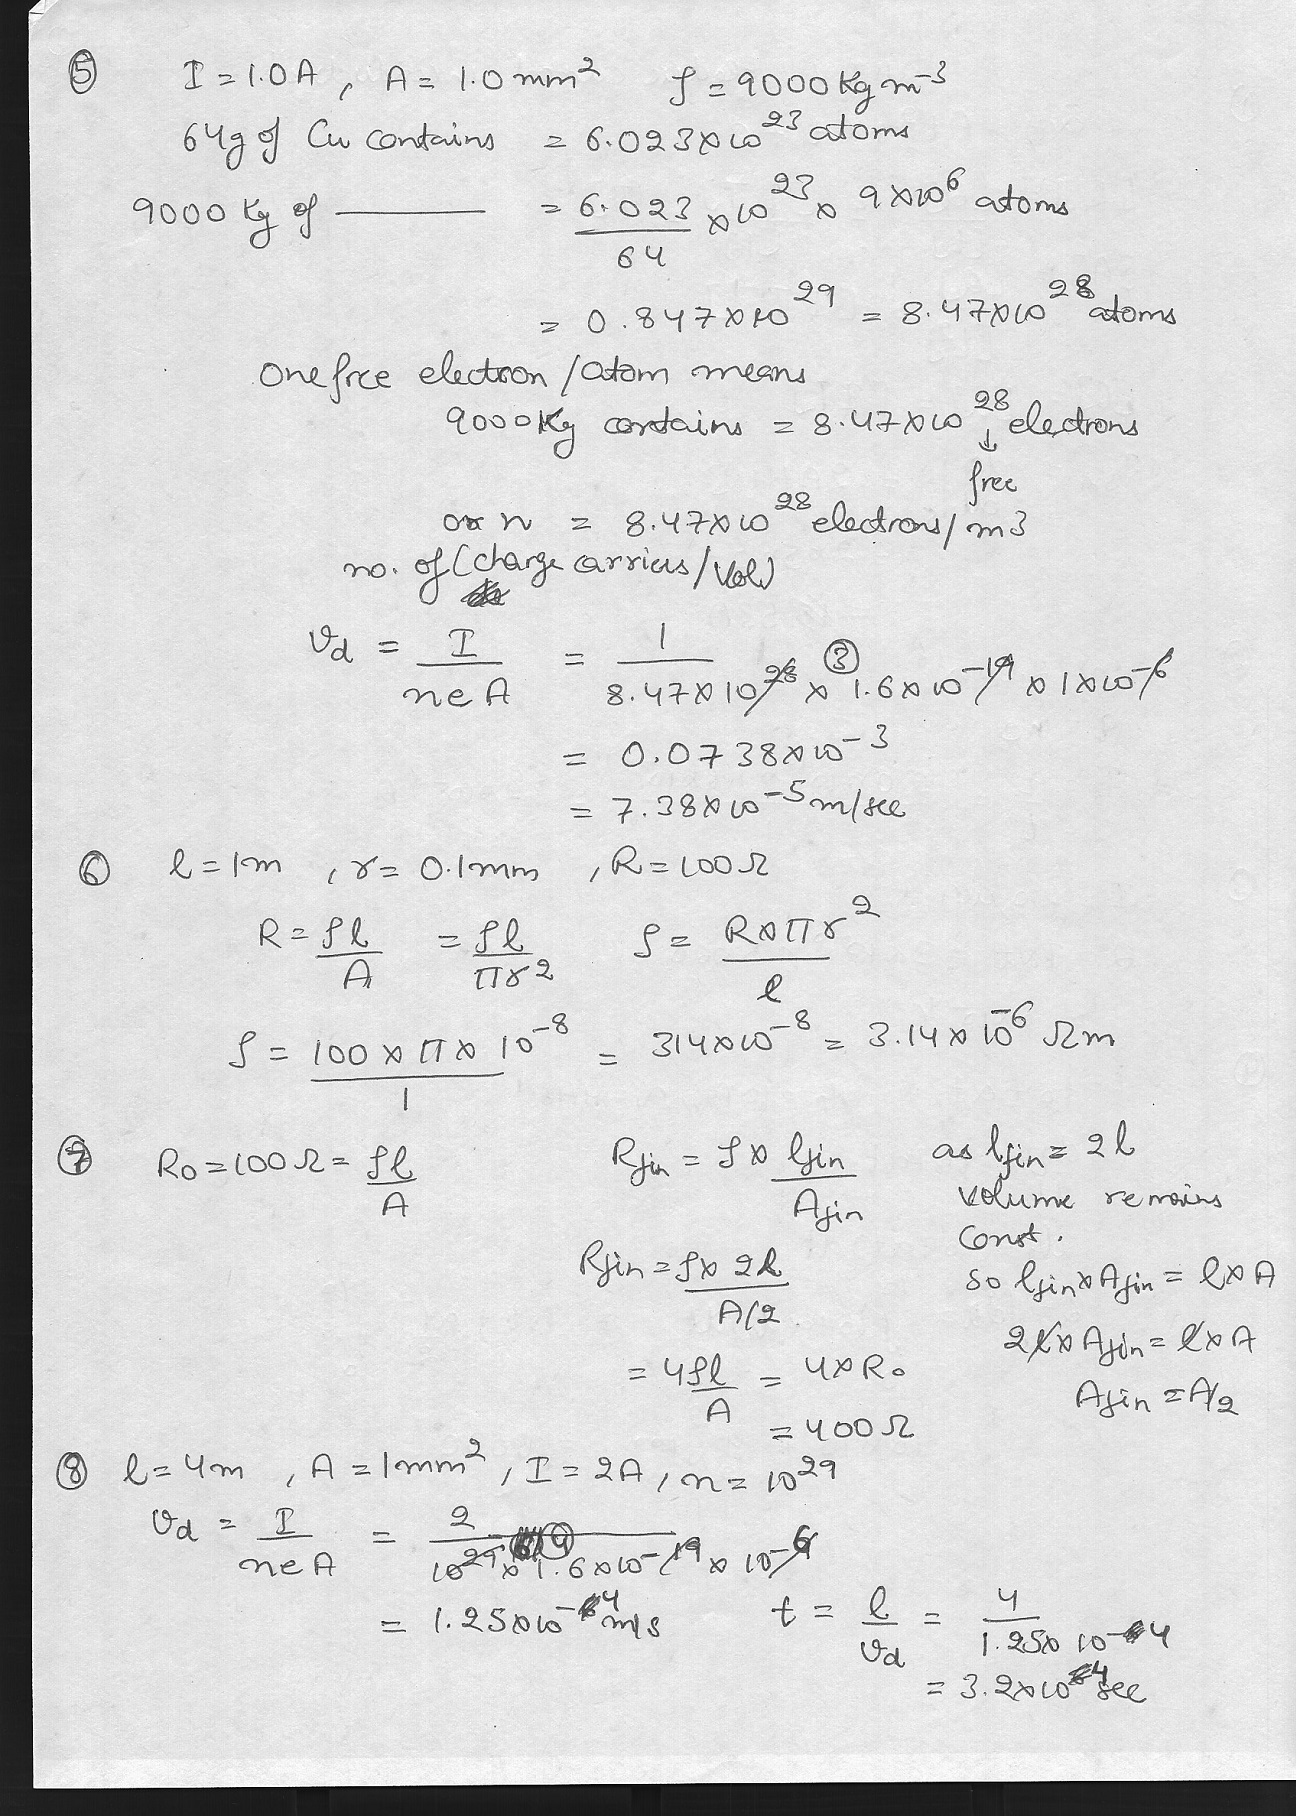 ⑤ I = 1.0A , A = 1.0mm² ρ = 9000 Kg m⁻³
64g of Cu contains = 6.023×10²³ atoms
9000 Kg of ——— = 6.023/64 × 10²³ × 9×10⁶ atoms
= 0.847×10²⁹ = 8.47×10²⁸ atoms
One free electron /atom means
9000Kg contains = 8.47×10²⁸ electrons
↓
free
or n = 8.47×10²⁸ electrons/m3
no. of (charge carriers/Vol.)
vd = I/neA = 1/8.47×10²⁸ × 1.6×10⁻¹⁹ × 1×10⁻⁶ ③
= 0.0738×10⁻³
= 7.38×10⁻⁵ m/sec
⑥ l = 1m , r = 0.1mm , R = 100Ω
R = ρl/A = ρl/πr² ρ = R×πr²/l
ρ = 100 × π × 10⁻⁸/1 = 314×10⁻⁸ = 3.14 × 10⁻⁶ Ωm
⑦ R₀ = 100Ω = ρl/A Rfin = ρ × lfin/Afin as lfin = 2l
volume remains
const.
Rfin = ρ× 2l/A/2 so lfin×Afin = l×A
2l×Afin = l×A
= 4ρl/A = 4×R₀ Afin = A/2
= 400Ω
⑧ l = 4m , A = 1mm² , I = 2A , n = 10²⁹
vd = I/neA = 2/10²⁹ × 1.6×10⁻¹⁹ × 10⁻⁶ ④
= 1.25×10⁻⁴ m/s t = l/vd = 4/1.25× 10⁻⁴
= 3.2×10⁴ sec